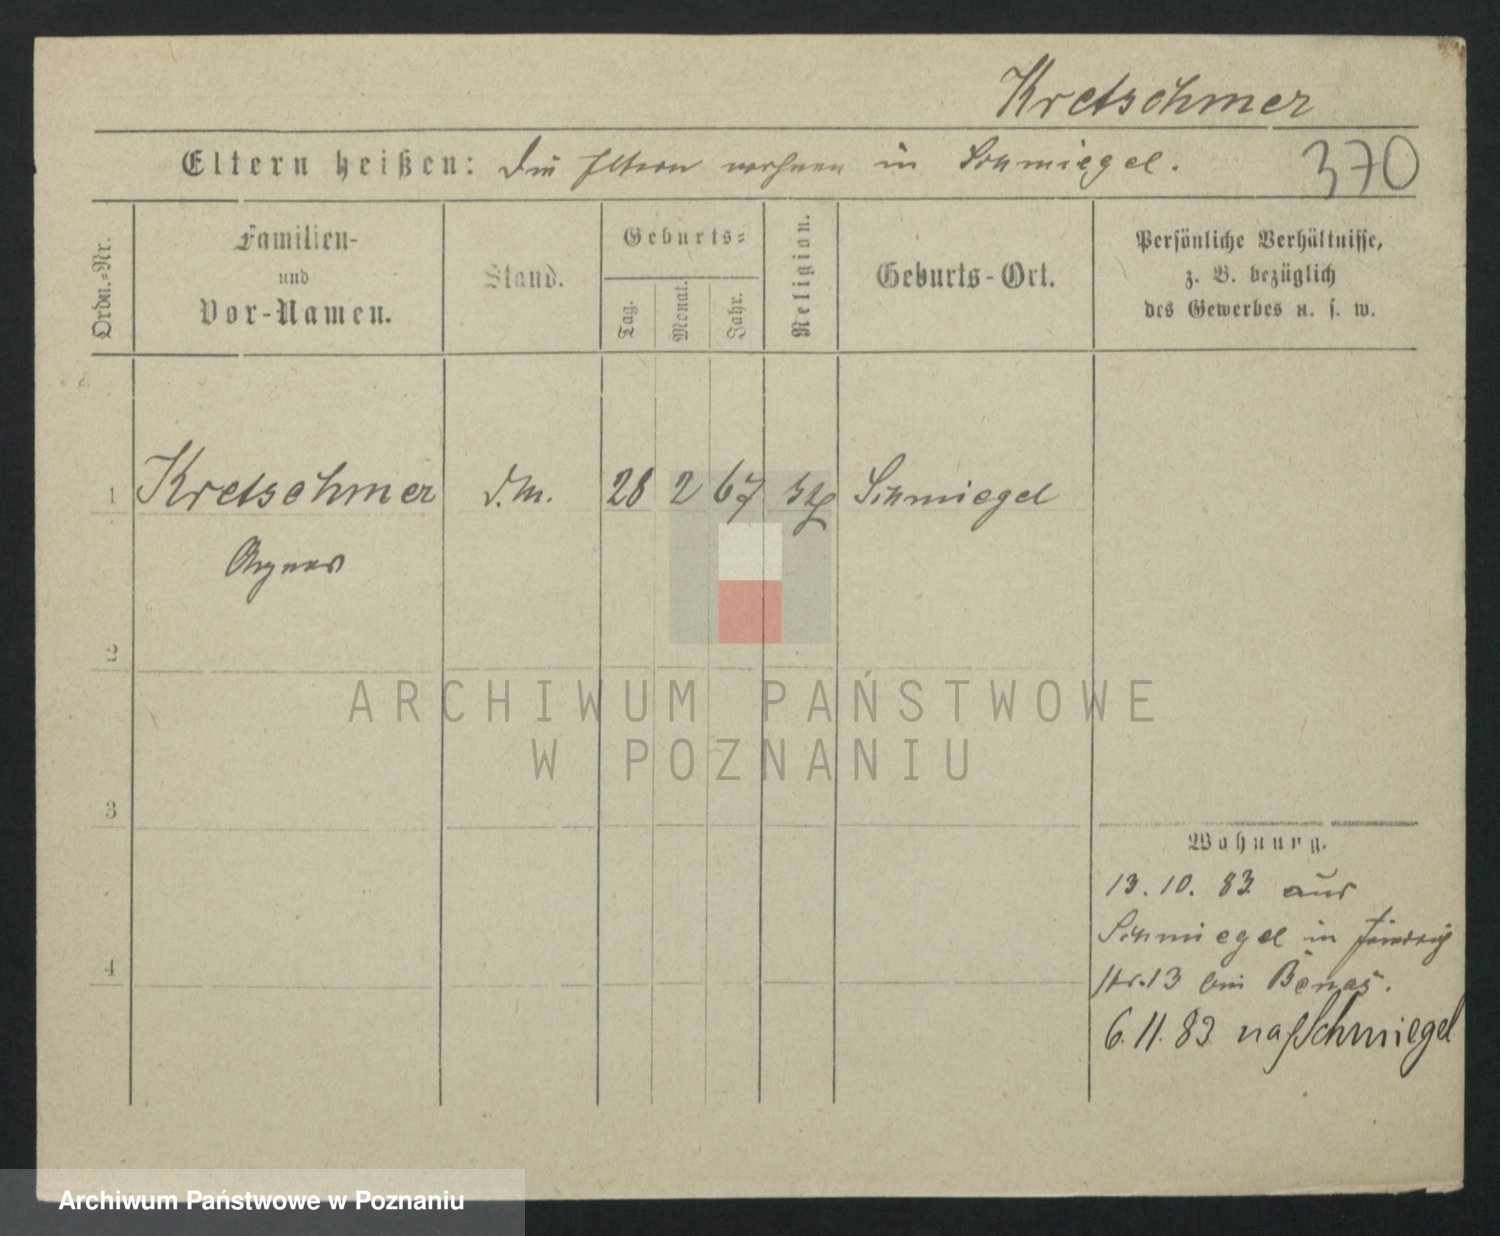 Kretschmer
Eltern heißen: Die Eltern wohnen in Schmiegel.
370
Ordn.-Nr.
Familien-
und
Vor-Namen.
Stand.
Geburts-
Tag.
Monat.
Jahr.
Religion.
Geburts-Ort.
Persönliche Verhältnisse,
z. B. bezüglich
des Gewerbes u. s. w.
1 Kretschmer d. M. 28 2 67 Schmiegel
Agnes
2
3
4
Wohnung.
13. 10. 83 aus
Schmiegel in
str. 13 bei
6. 11. 83 nach Schmiegel
ARCHIWUM PAŃSTWOWE
W POZNANIU
Archiwum Państwowe w Poznaniu